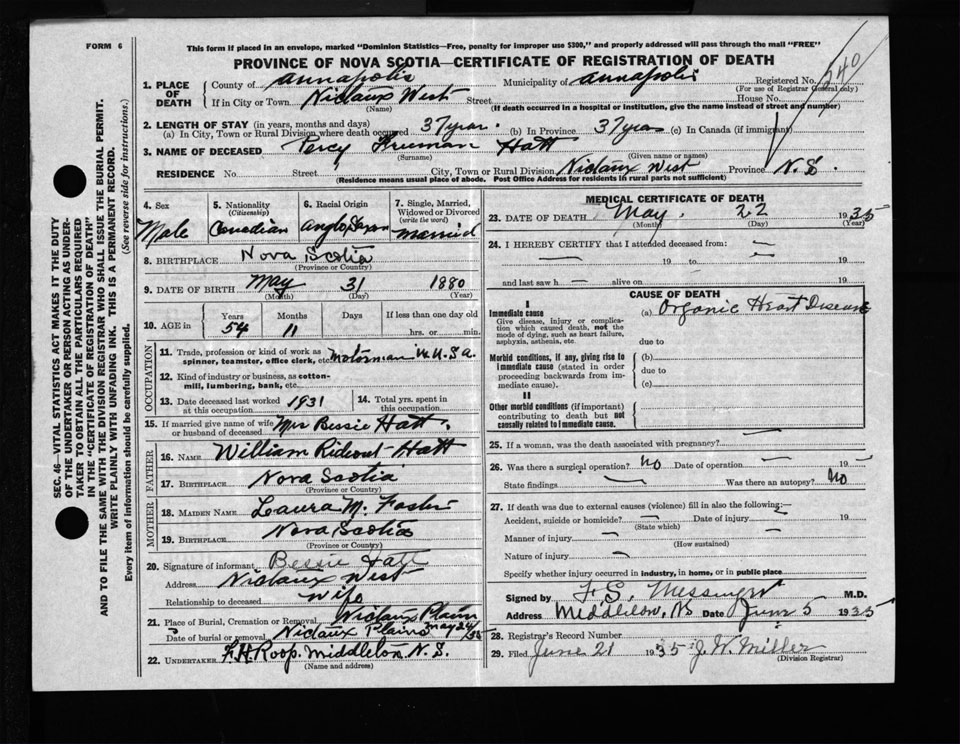 FORM 6
This form if placed in an envelope, marked "Dominion Statistics—Free, penalty for improper use $300," and properly addressed will pass through the mail "FREE"
PROVINCE OF NOVA SCOTIA—CERTIFICATE OF REGISTRATION OF DEATH
1. PLACE OF DEATH County of Annapolis Municipality of Annapolis Registered No. 240
(For use of Registrar General only)
If in City or Town Nictaux West Street House No.
(Name) (If death occurred in a hospital or institution, give the name instead of street and number)
2. LENGTH OF STAY (in years, months and days)
(a) In City, Town or Rural Division where death occurred 37 years (b) In Province 37 years (c) In Canada (if immigrant)
3. NAME OF DECEASED Percy Freeman Hatt
(Surname) (Given name or names)
RESIDENCE No. Street City, Town or Rural Division Nictaux West Province N.S.
(Residence means usual place of abode. Post Office Address for residents in rural parts not sufficient)
4. Sex Male
5. Nationality (Citizenship) Canadian
6. Racial Origin Anglo Saxon
7. Single, Married, Widowed or Divorced (write the word) Married
8. BIRTHPLACE Nova Scotia
(Province or Country)
9. DATE OF BIRTH May 31 1880
(Month) (Day) (Year)
10. AGE in Years 54 Months 11 Days If less than one day old hrs. or min.
OCCUPATION
11. Trade, profession or kind of work as spinner, teamster, office clerk, etc. Motorman W. U. S a.
12. Kind of industry or business, as cotton-mill, lumbering, bank, etc.
13. Date deceased last worked at this occupation 1931
14. Total yrs. spent in this occupation
15. If married give name of wife or husband of deceased Mrs Bessie Hatt.
FATHER
16. Name William Rideout Hatt
17. Birthplace Nova Scotia
(Province or Country)
MOTHER
18. Maiden Name Laura M. Foster
19. Birthplace Nova Scotia
(Province or Country)
20. Signature of informant Bessie Hatt
Address Nictaux West
Relationship to deceased wife
21. Place of Burial, Cremation or Removal Nictaux Plains
Date of burial or removal Nictaux Plains May 24/35
22. UNDERTAKER F.H. Roop. Middleton N.S.
(Name and address)
MEDICAL CERTIFICATE OF DEATH
23. DATE OF DEATH May. 22 1935
(Month) (Day) (Year)
24. I HEREBY CERTIFY that I attended deceased from:
19 to 19
and last saw h alive on 19
CAUSE OF DEATH
I
Immediate cause (a) Organic Heart Disease
Give disease, injury or complication which caused death, not the mode of dying, such as heart failure, asphyxia, asthenia, etc.
due to
Morbid conditions, if any, giving rise to immediate cause (stated in order proceeding backwards from immediate cause).
(b)
due to
(c)
II
Other morbid conditions (if important) contributing to death but not causally related to immediate cause.
25. If a woman, was the death associated with pregnancy?
26. Was there a surgical operation? No Date of operation 19
State findings Was there an autopsy? No
27. If death was due to external causes (violence) fill in also the following:
Accident, suicide or homicide? Date of injury 19
(State which)
Manner of injury
(How sustained)
Nature of injury
Specify whether injury occurred in industry, in home, or in public place
Signed by F. S. Messenger M.D.
Address Middleton, NS Date June 5 1935
28. Registrar's Record Number
29. Filed June 21 1935 J. W. Miller
(Division Registrar)
SEC. 46—VITAL STATISTICS ACT MAKES IT THE DUTY
OF THE UNDERTAKER OR PERSON ACTING AS UNDER-
TAKER TO OBTAIN ALL THE PARTICULARS REQUIRED
IN THE "CERTIFICATE OF REGISTRATION OF DEATH"
AND TO FILE THE SAME WITH THE DIVISION REGISTRAR WHO SHALL ISSUE THE BURIAL PERMIT.
WRITE PLAINLY WITH UNFADING INK. THIS IS A PERMANENT RECORD.
Every item of information should be carefully supplied. (See reverse side for instructions.)